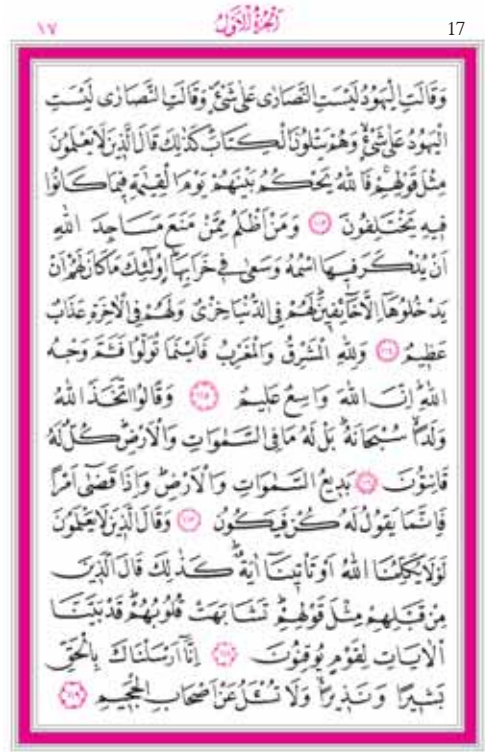 ١٧ اَلْجُزْءُ الْاَوَّلُ 17
وَقَالَتِ الْيَهُودُ لَيْسَتِ النَّصَارٰى عَلٰى شَيْءٍۖ وَقَالَتِ النَّصَارٰى لَيْسَتِ
الْيَهُودُ عَلٰى شَيْءٍۙ وَهُمْ يَتْلُونَ الْكِتَابَۜ كَذٰلِكَ قَالَ الَّذِينَ لَا يَعْلَمُونَ
مِثْلَ قَوْلِهِمْۚ فَاللّٰهُ يَحْكُمُ بَيْنَهُمْ يَوْمَ الْقِيٰمَةِ فِيمَا كَانُوا
فِيهِ يَخْتَلِفُونَ ﴿١١٣﴾ وَمَنْ اَظْلَمُ مِمَّنْ مَنَعَ مَسَاجِدَ اللّٰهِ
اَنْ يُذْكَرَ فِيهَا اسْمُهُ وَسَعٰى فِي خَرَابِهَاۜ اُو۬لٰٓئِكَ مَا كَانَ لَهُمْ اَنْ
يَدْخُلُوهَٓا اِلَّا خَٓائِفِينَۜ لَهُمْ فِي الدُّنْيَا خِزْيٌ وَلَهُمْ فِي الْاٰخِرَةِ عَذَابٌ
عَظِيمٌ ﴿١١٤﴾ وَلِلّٰهِ الْمَشْرِقُ وَالْمَغْرِبُ فَاَيْنَمَا تُوَلُّوا فَثَمَّ وَجْهُ
اللّٰهِۜ اِنَّ اللّٰهَ وَاسِعٌ عَلِيمٌ ﴿١١٥﴾ وَقَالُوا اتَّخَذَ اللّٰهُ
وَلَدًاۙ سُبْحَانَهُۜ بَلْ لَهُ مَا فِي السَّمٰوَاتِ وَالْاَرْضِۜ كُلٌّ لَهُ
قَانِتُونَ ﴿١١٦﴾ بَدِيعُ السَّمٰوَاتِ وَالْاَرْضِۜ وَاِذَا قَضٰٓى اَمْرًا
فَاِنَّمَا يَقُولُ لَهُ كُنْ فَيَكُونُ ﴿١١٧﴾ وَقَالَ الَّذِينَ لَا يَعْلَمُونَ
لَوْلَا يُكَلِّمُنَا اللّٰهُ اَوْ تَأْتِينَٓا اٰيَةٌۜ كَذٰلِكَ قَالَ الَّذِينَ
مِنْ قَبْلِهِمْ مِثْلَ قَوْلِهِمْۜ تَشَابَهَتْ قُلُوبُهُمْۜ قَدْ بَيَّنَّا
الْاٰيَاتِ لِقَوْمٍ يُوقِنُونَ ﴿١١٨﴾ اِنَّٓا اَرْسَلْنَاكَ بِالْحَقِّ
بَشِيرًا وَنَذِيرًاۙ وَلَا تُسْـَٔلُ عَنْ اَصْحَابِ الْجَحِيمِ ﴿١١٩﴾